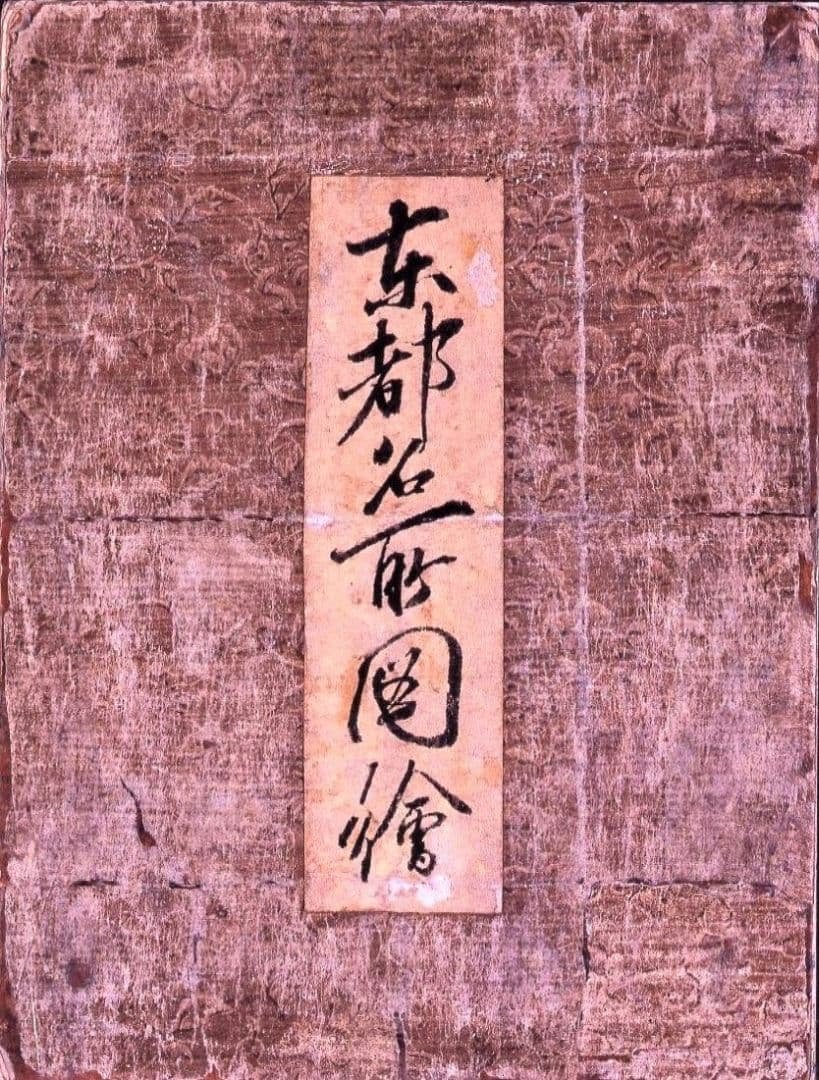 东都名所图繪